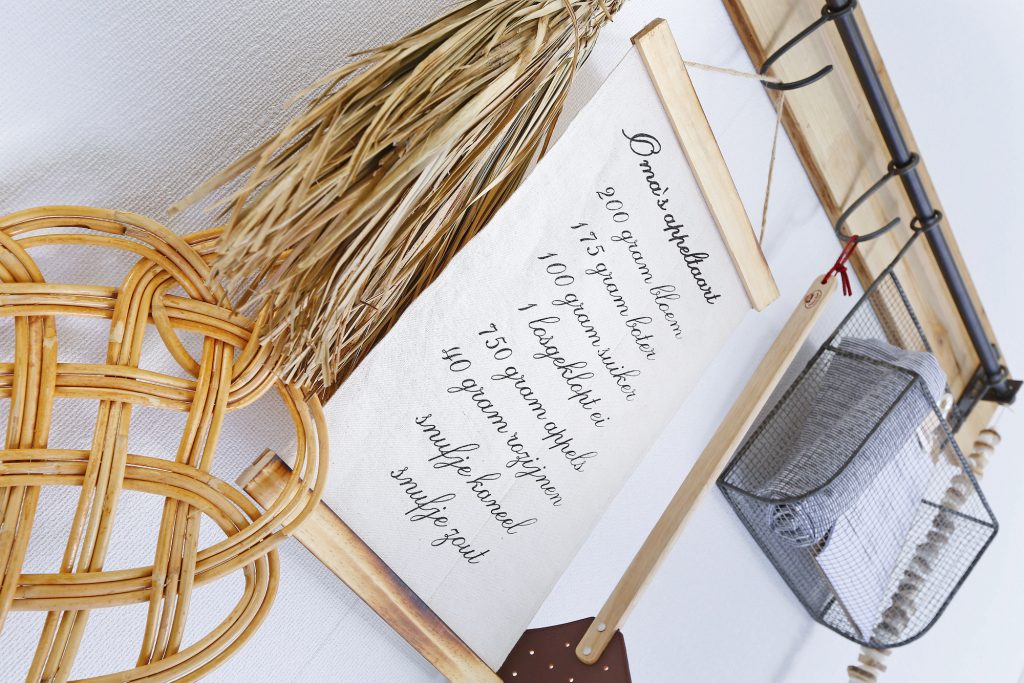 Oma's appeltaart
200 gram bloem
175 gram boter
100 gram suiker
1 losgeklopt ei
750 gram appels
40 gram rozijnen
snufje kaneel
snufje zout